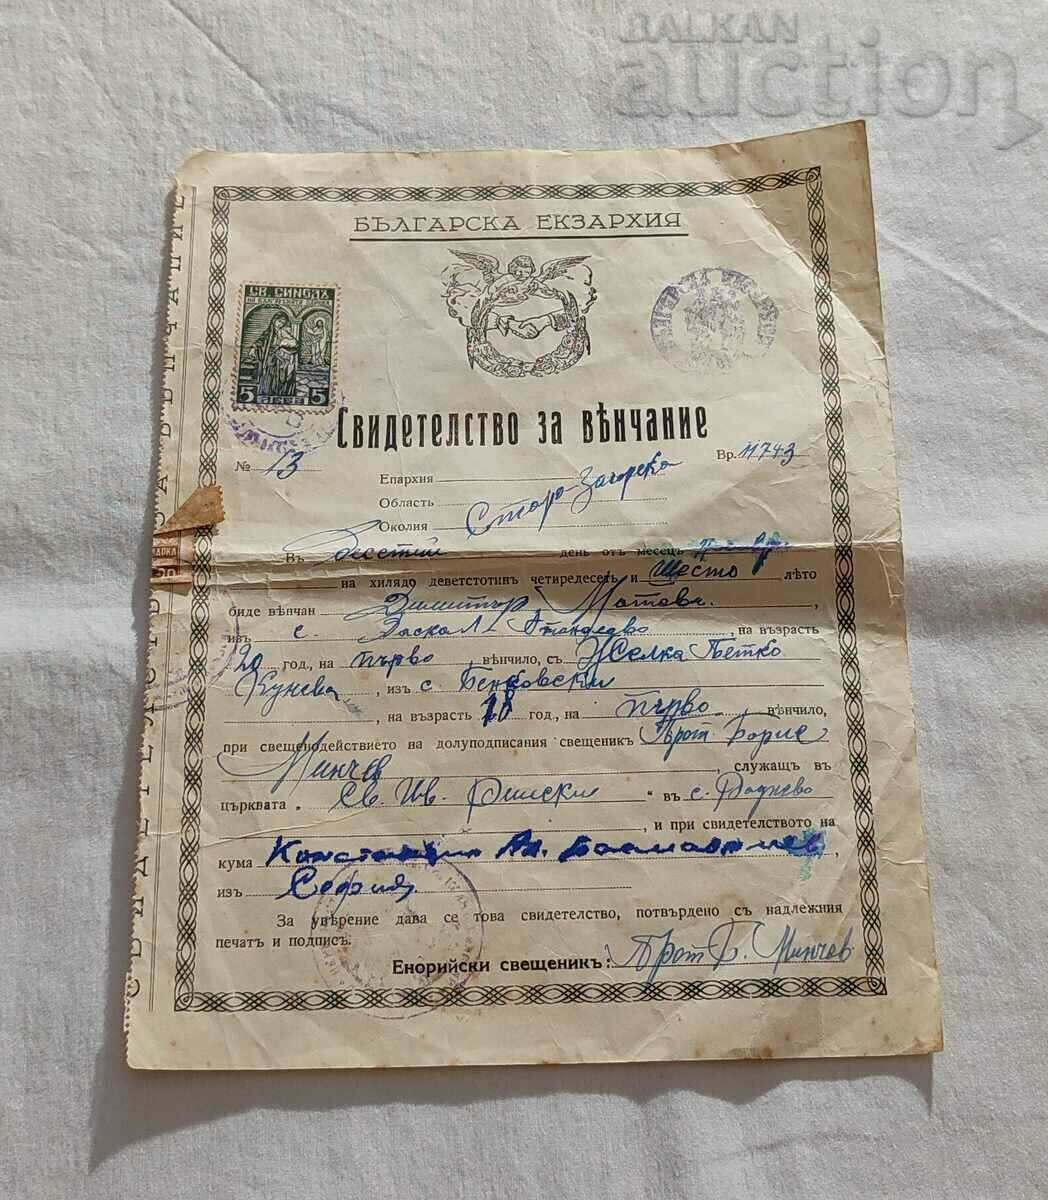 BALKAN
auction
БЪЛГАРСКА ЕКЗАРХИЯ
СВ. СИНОДЪ
5 ЛЕВА 5
Свидетелство за вѣнчание
№ 13
Вр. 11743
Епархия
Область Старо-Загорска
Околия
Въ десетий день отъ месецъ
на хилядо деветстотинъ четиредесетъ и шесто лѣто
биде вѣнчан Димитър Матевъ,
изъ с. Даскал-Атанасово, на възрасть
20 год., на първо вѣнчило, съ Желка Петко
Кунева, изъ с. Бенковски
, на възрасть 18 год., на първо вѣнчило,
при свещенодействието на долуподписания свещеникъ Прот. Борис
Минчев, служащъ въ
църквата „Св. Ив. Рилски" въ с. Раднево
, и при свидетелството на
кума Константин Ал.
изъ София
За увѣрение дава се това свидетелство, потвърдено съ надлежния
печатъ и подписъ.
Енорийски свещеникъ: Прот. Б. Минчев